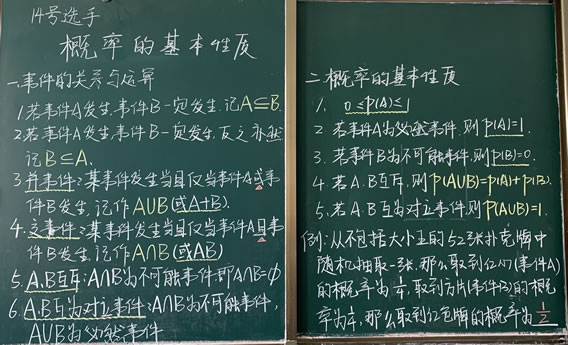 14号选手
概率的基本性质
一.事件的关系与运算
1.若事件A发生.事件B一定发生.记A⊆B.
2.若事件A发生.事件B一定发生.反之亦然
记B⊆A.
3.并事件:某事件发生当且仅当事件A或事
件B发生.记作A∪B(或A+B).
4.交事件:某事件发生当且仅当事件A且事
件B发生.记作A∩B(或AB)
5.A.B互斥:A∩B为不可能事件.即A∩B=∅
6.A.B互为对立事件:A∩B为不可能事件,
A∪B为必然事件
二.概率的基本性质
1. 0≤P(A)≤1
2.若事件A为必然事件.则P(A)=1.
3.若事件B为不可能事件.则P(B)=0.
4.若A.B互斥.则P(A∪B)=P(A)+P(B).
5.若A.B互为对立事件.则P(A∪B)=1.
例:从不包括大小王的52张扑克牌中
随机抽取一张.那么取到红心(事件A)
的概率为1/4,取到方片(事件B)的概
率为1/4,那么取到红色牌的概率为1/2